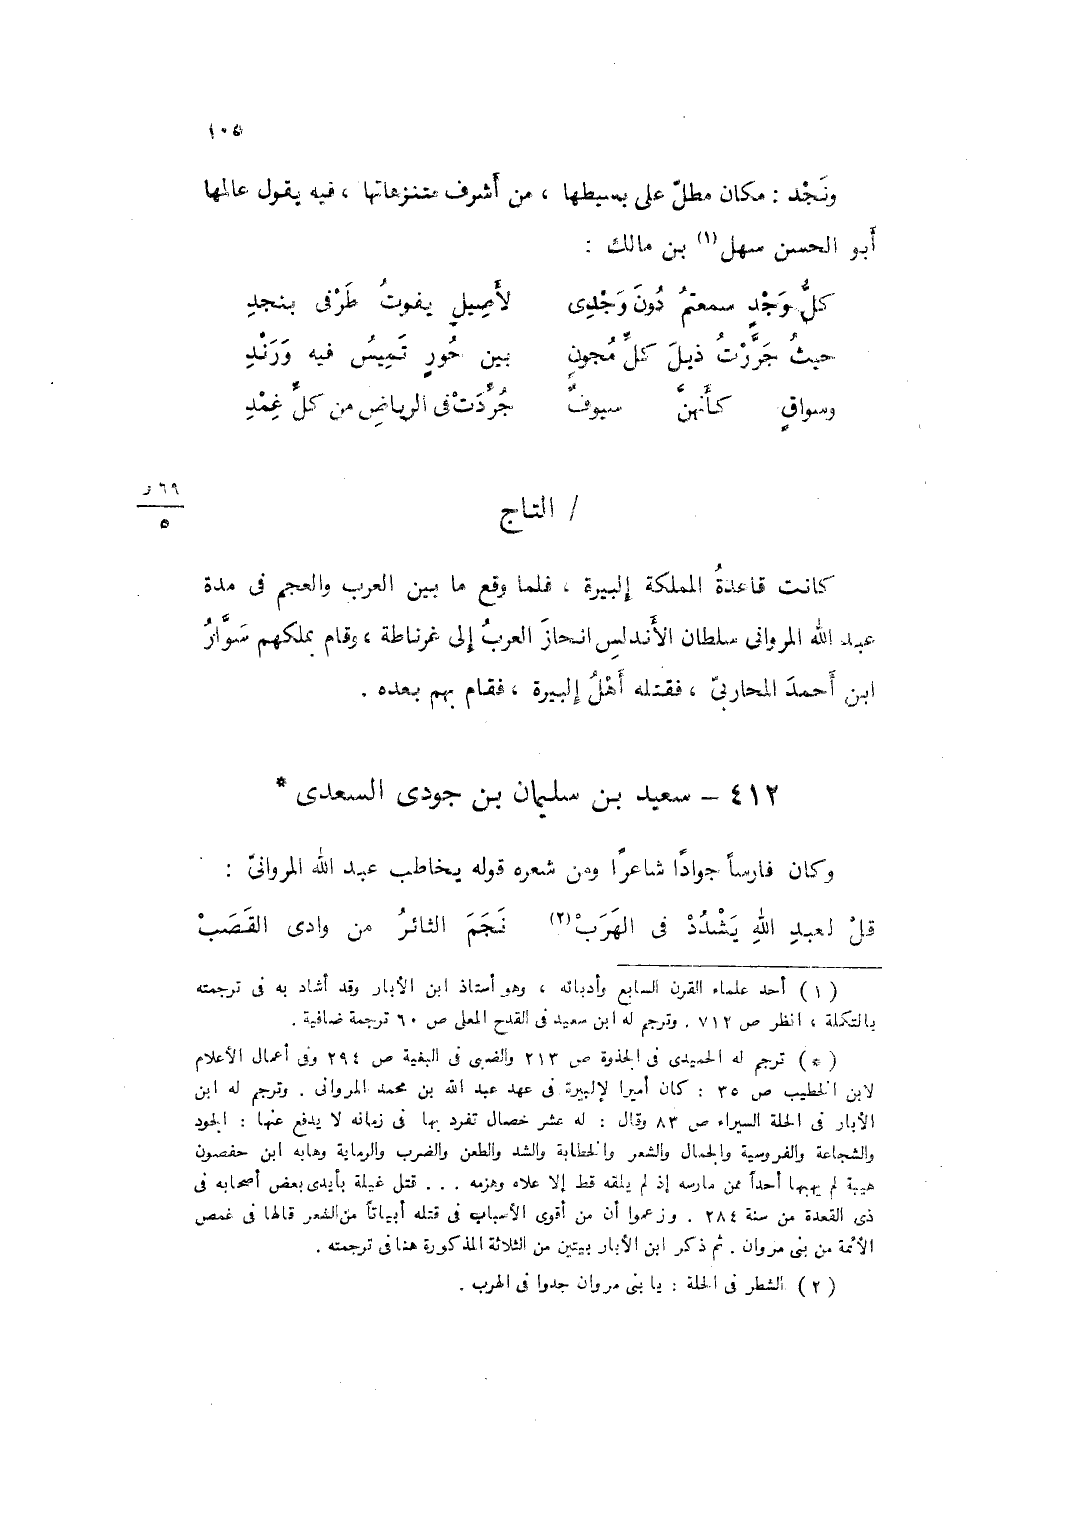 ١٠٥
ونَجْد : مكان مطلّ على بسيطها ، من أَشرف متنزهاتها ، فيه يقول عالمها
أَبو الحسن سهل(١) بن مالك :
كلُّ وَجْدٍ سمعتمُ دُونَ وَجْدِى لأَصِيلٍ يفوتُ طَرْفى بنجدِ
حيثُ جَرَّرْتُ ذيلَ كلِّ مُجونٍ بين حُورٍ تَمِيسُ فيه وَرَنْدِ
وسواقٍ كأَنهنَّ سيوفٌ جُرِّدَتْ فى الرياضِ من كلِّ غِمْدِ
٦٩ ر
٥
/ التاج
كانت قاعدةُ المملكة إلبيرة ، فلما وقع ما بين العرب والعجم فى مدة
عبد الله المروانى سلطان الأَندلسِ انحازَ العربُ إلى غرناطة ، وقام بملكهم سَوَّارُ
ابن أَحمدَ المحاربىّ ، فقتله أَهْلُ إلبيرة ، فقام بهم بعده .
٤١٢ – سعيد بن سليمان بن جودى السعدى *
وكان فارساً جوادًا شاعرًا ومن شعره قوله يخاطب عبد الله المروانىّ :
قلْ لعبدِ اللهِ يَشْدُدْ فى الهَرَبْ(٢) نَجَمَ الثائرُ من وادى القَصَبْ
(١) أحد علماء القرن السابع وأدبائه ، وهو أستاذ ابن الأبار وقد أشاد به فى ترجمته
بالتكلة ، انظر ص ٧١٢ . وترجم له ابن سعيد فى القدح المعلى ص ٦٠ ترجمة ضافية .
(*) ترجم له الحميدى فى الجذوة ص ٢١٣ والضبى فى البغية ص ٢٩٤ وفى أعمال الأعلام
لابن الخطيب ص ٣٥ : كان أميرا لإلبيرة فى عهد عبد الله بن محمد المروانى . وترجم له ابن
الأبار فى الحلة السيراء ص ٨٣ وقال : له عشر خصال تفرد بها فى زمانه لا يدفع عنها : الجود
والشجاعة والفروسية والجمال والشعر والخطابة والشد والطعن والضرب والرماية وهابه ابن حفصون
هيبة لم يهبها أحداً ممن مارسه إذ لم يلقه قط إلا علاه وهزمه . . . قتل غيلة بأيدى بعض أصحابه فى
ذى القعدة من سنة ٢٨٤ . وزعموا أن من أقوى الأسباب فى قتله أبياتاً من الشعر قالها فى غمص
الأئمة من بنى مروان . ثم ذكر ابن الأبار بيتين من الثلاثة المذكورة هنا فى ترجمته .
(٢) الشطر فى الحلة : يا بنى مروان جدوا فى الهرب .